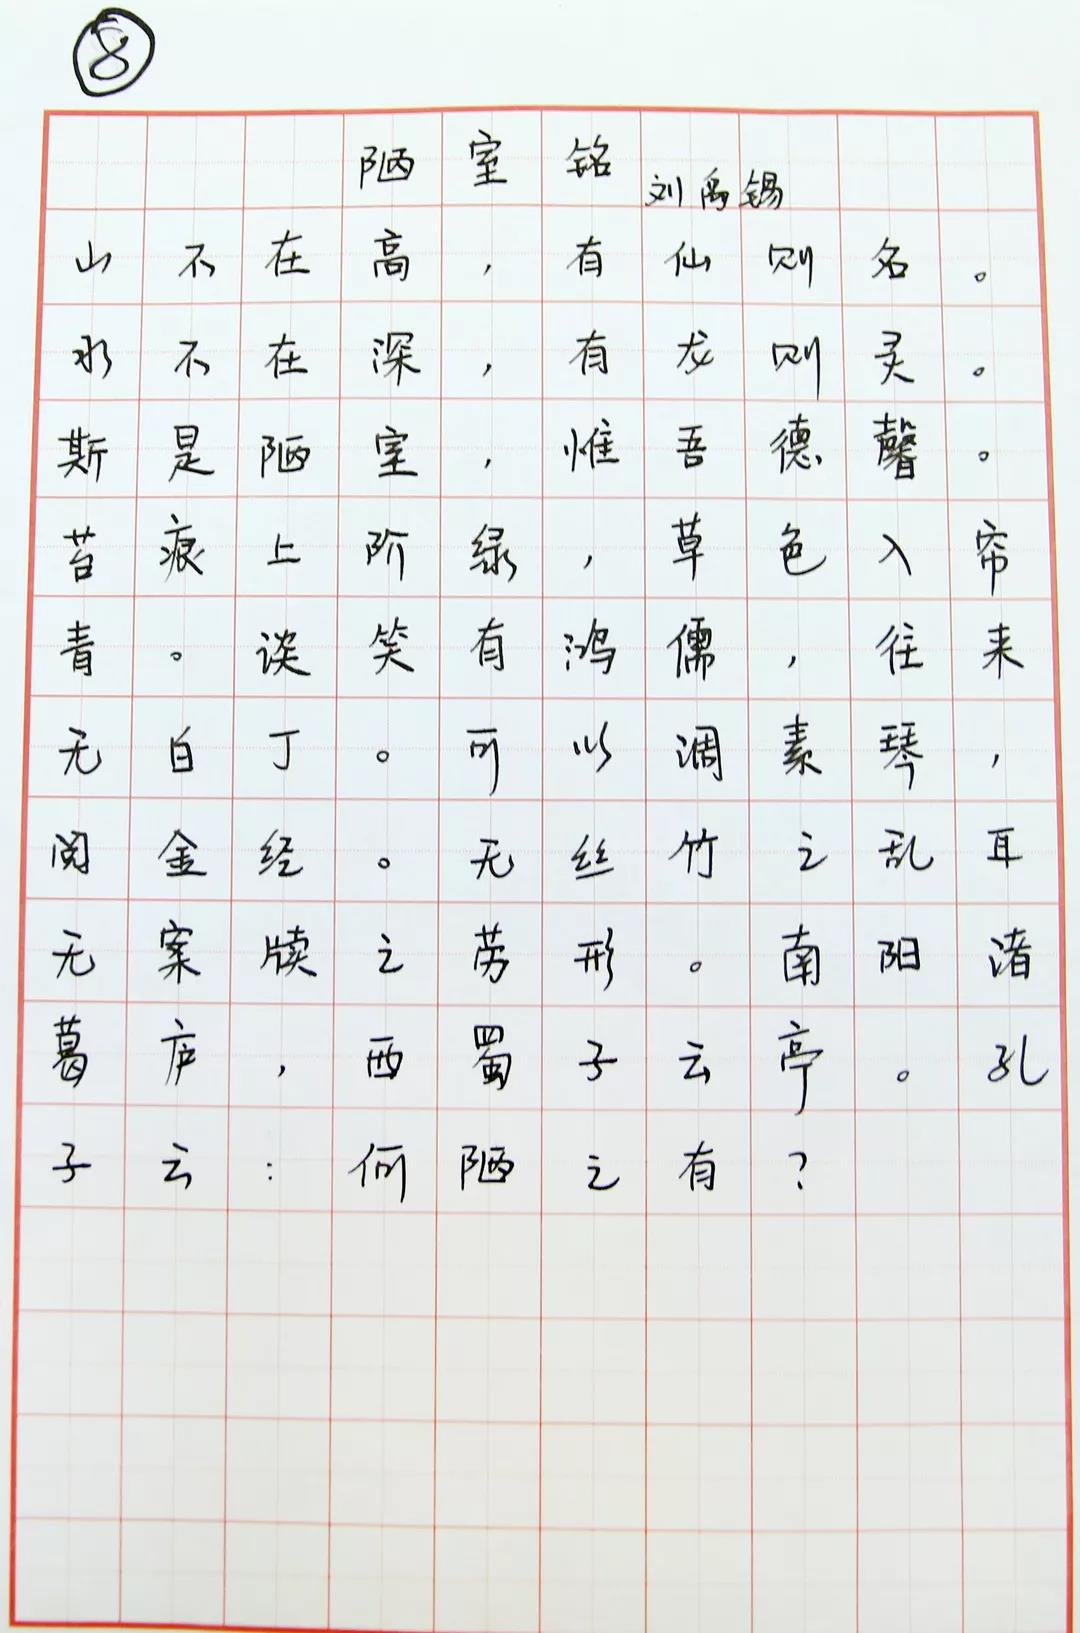 ⑧
陋室铭 刘禹锡
山不在高，有仙则名。
水不在深，有龙则灵。
斯是陋室，惟吾德馨。
苔痕上阶绿，草色入帘
青。谈笑有鸿儒，往来
无白丁。可以调素琴，
阅金经。无丝竹之乱耳
无案牍之劳形。南阳诸
葛庐，西蜀子云亭。孔
子云：何陋之有？